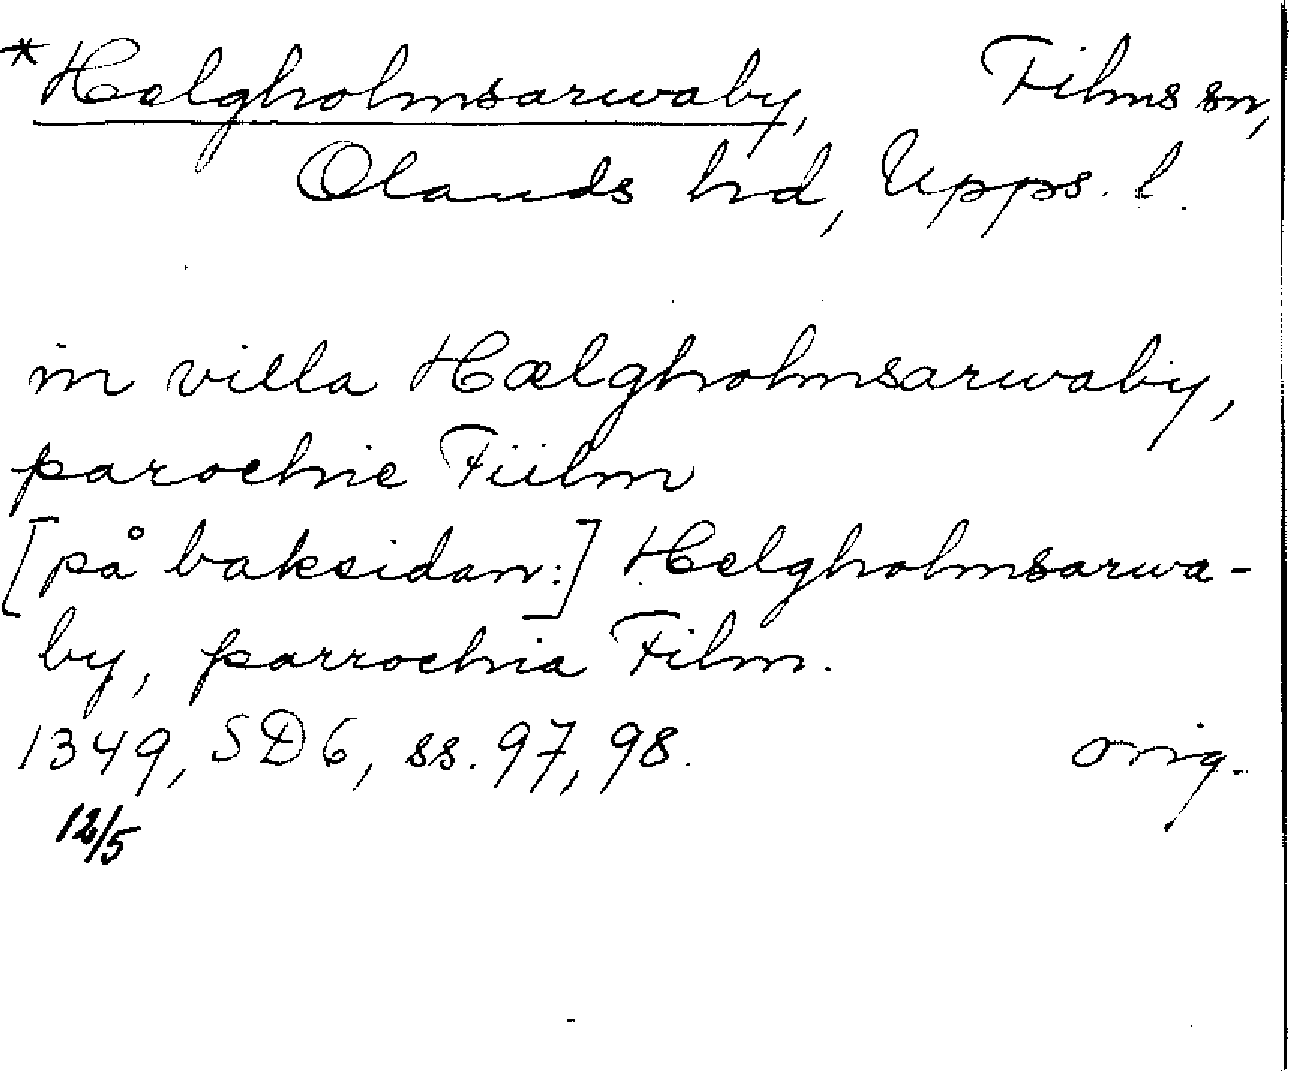 *Hælgholmsarwaby, Films sn,
Olands hd, Upps. l.
in villa Hælgholmsarwaby,
parochie Fiilm
[på baksidan:] Helgholmsarwa-
by, parrochia Film.
1349, SD 6, ss. 97, 98. orig.
12/5